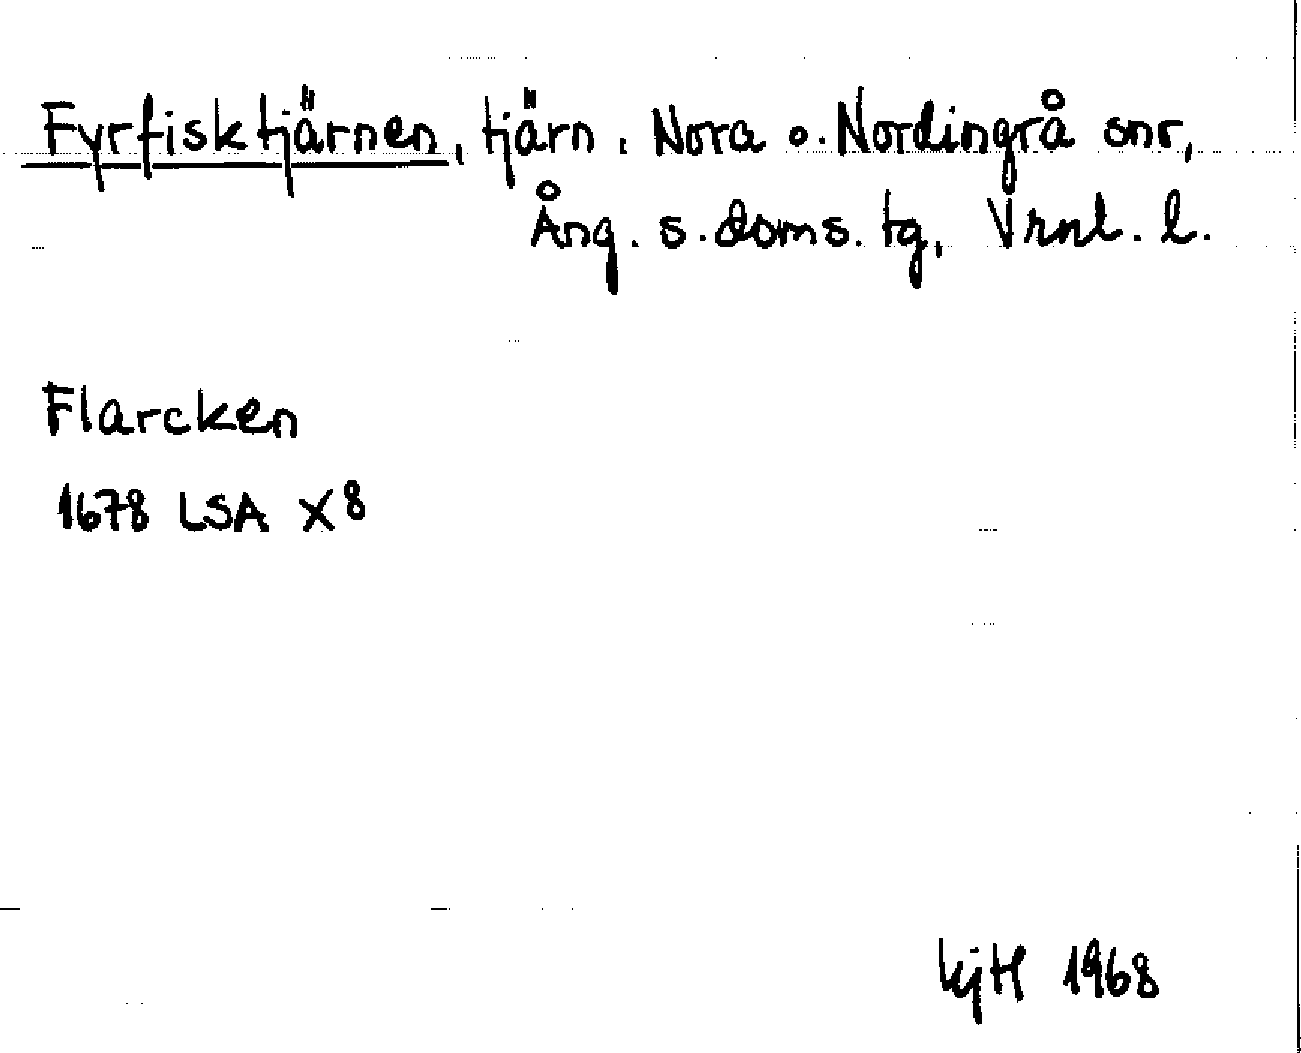 Fyrfisktjärnen, tjärn. Nora o. Nordingrå snr,
Ång. s. doms. tg, Vrnl. l.
Flarcken
1678 LSA X8
1968